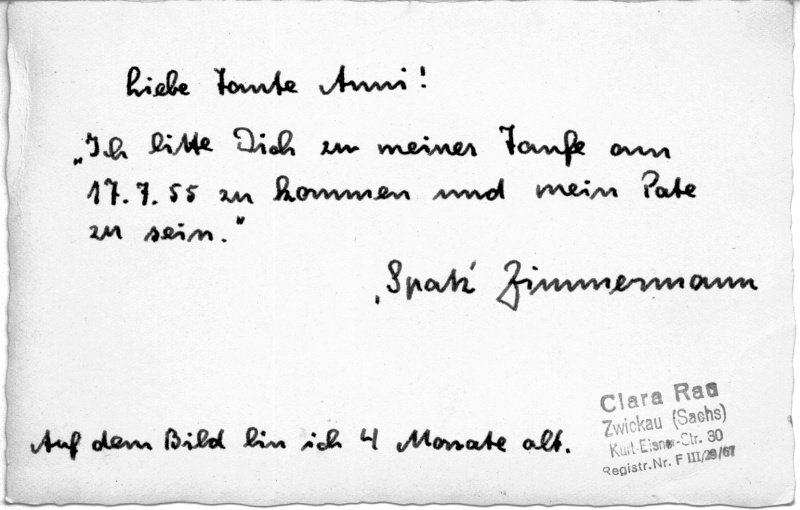 Liebe Tante Anni!
„Ich bitte Dich zu meiner Taufe am
17.7.55 zu kommen und mein Pate
zu sein."
‚Spatz' Zimmermann
Auf dem Bild bin ich 4 Monate alt.
Clara Rau
Zwickau (Sachs)
Kurt-Eisner-Str. 30
Registr.Nr. F III/29/67